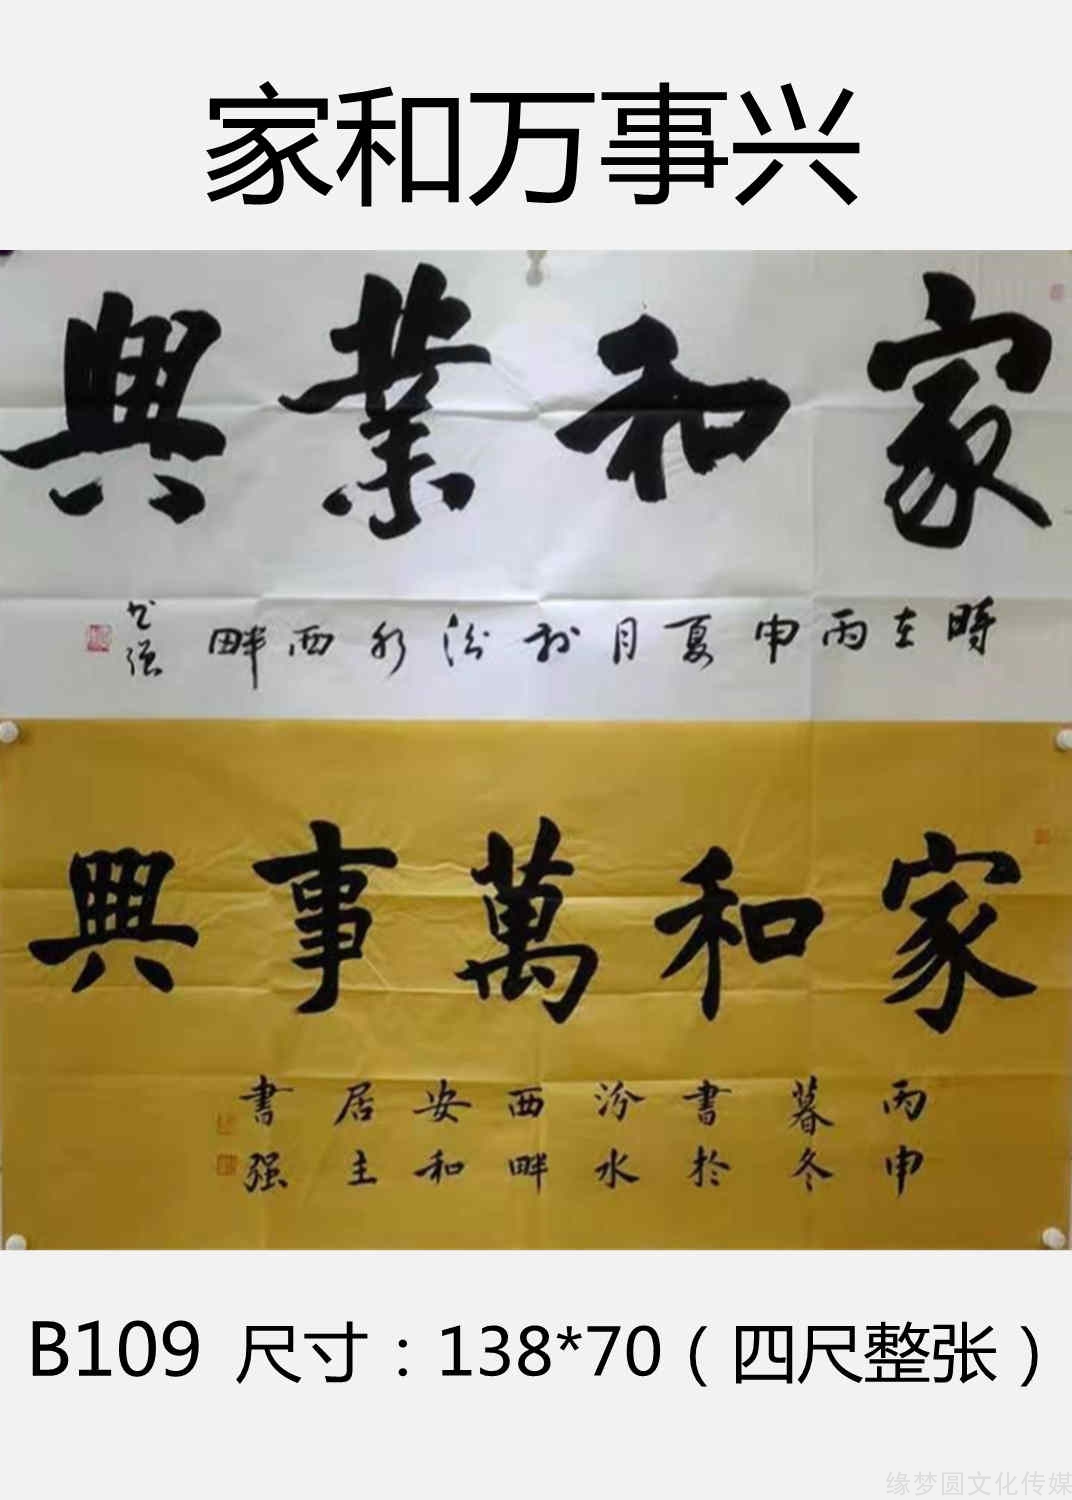 家和万事兴
家和業興
時在丙申夏月於汾水西畔
書强
家和萬事興
丙申
暮冬
書於
汾水
西畔
安和
居主
書强
B109 尺寸：138*70（四尺整张）
缘梦圆文化传媒